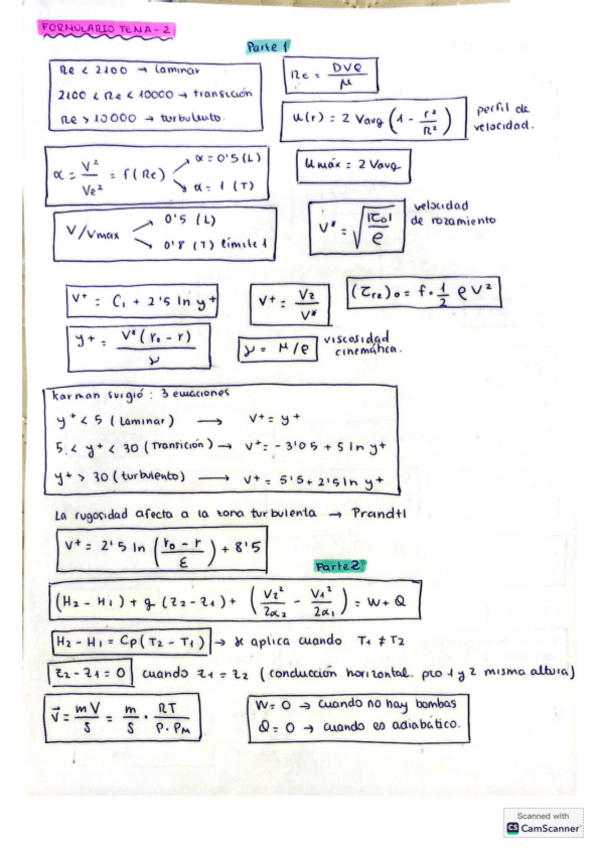 FORMULARIO TEMA-2
Parte 1
Re < 2100 → Laminar
2100 < Re < 10000 → transición
Re > 10000 → turbulento.
Re = DVρ / μ
u(r) = 2 Vavg (1 - r² / R²)
perfil de velocidad.
α = V² / Ve² = f(Re)
α = 0'5 (L)
α = 1 (T)
umáx = 2 Vavg
V/Vmax
0'5 (L)
0'8 (T) límite 1
V* = √(|τo| / ρ)
velocidad de rozamiento
V+ = C1 + 2'5 ln y+
V+ = Vz / V*
(τrz)o = f · 1/2 ρ V²
y+ = V*(ro - r) / ν
ν = μ/ρ
viscosidad cinemática.
Karman surgió: 3 ecuaciones
y+ < 5 (Laminar) → V+ = y+
5 < y+ < 30 (Transición) → V+ = -3'05 + 5 ln y+
y+ > 30 (turbulento) → V+ = 5'5 + 2'5 ln y+
La rugosidad afecta a la zona turbulenta → Prandtl
V+ = 2'5 ln (ro - r / ε) + 8'5
Parte 2
(H2 - H1) + g (z2 - z1) + (V2² / 2α2 - V1² / 2α1) = W + Q
H2 - H1 = Cp(T2 - T1) → se aplica cuando T1 ≠ T2
z2 - z1 = 0 cuando z1 = z2 (conducción horizontal. pto 1 y 2 misma altura)
V = mV / S = m / S · RT / P·PM
W = 0 → cuando no hay bombas
Q = 0 → cuando es adiabático.
Scanned with
CS CamScanner